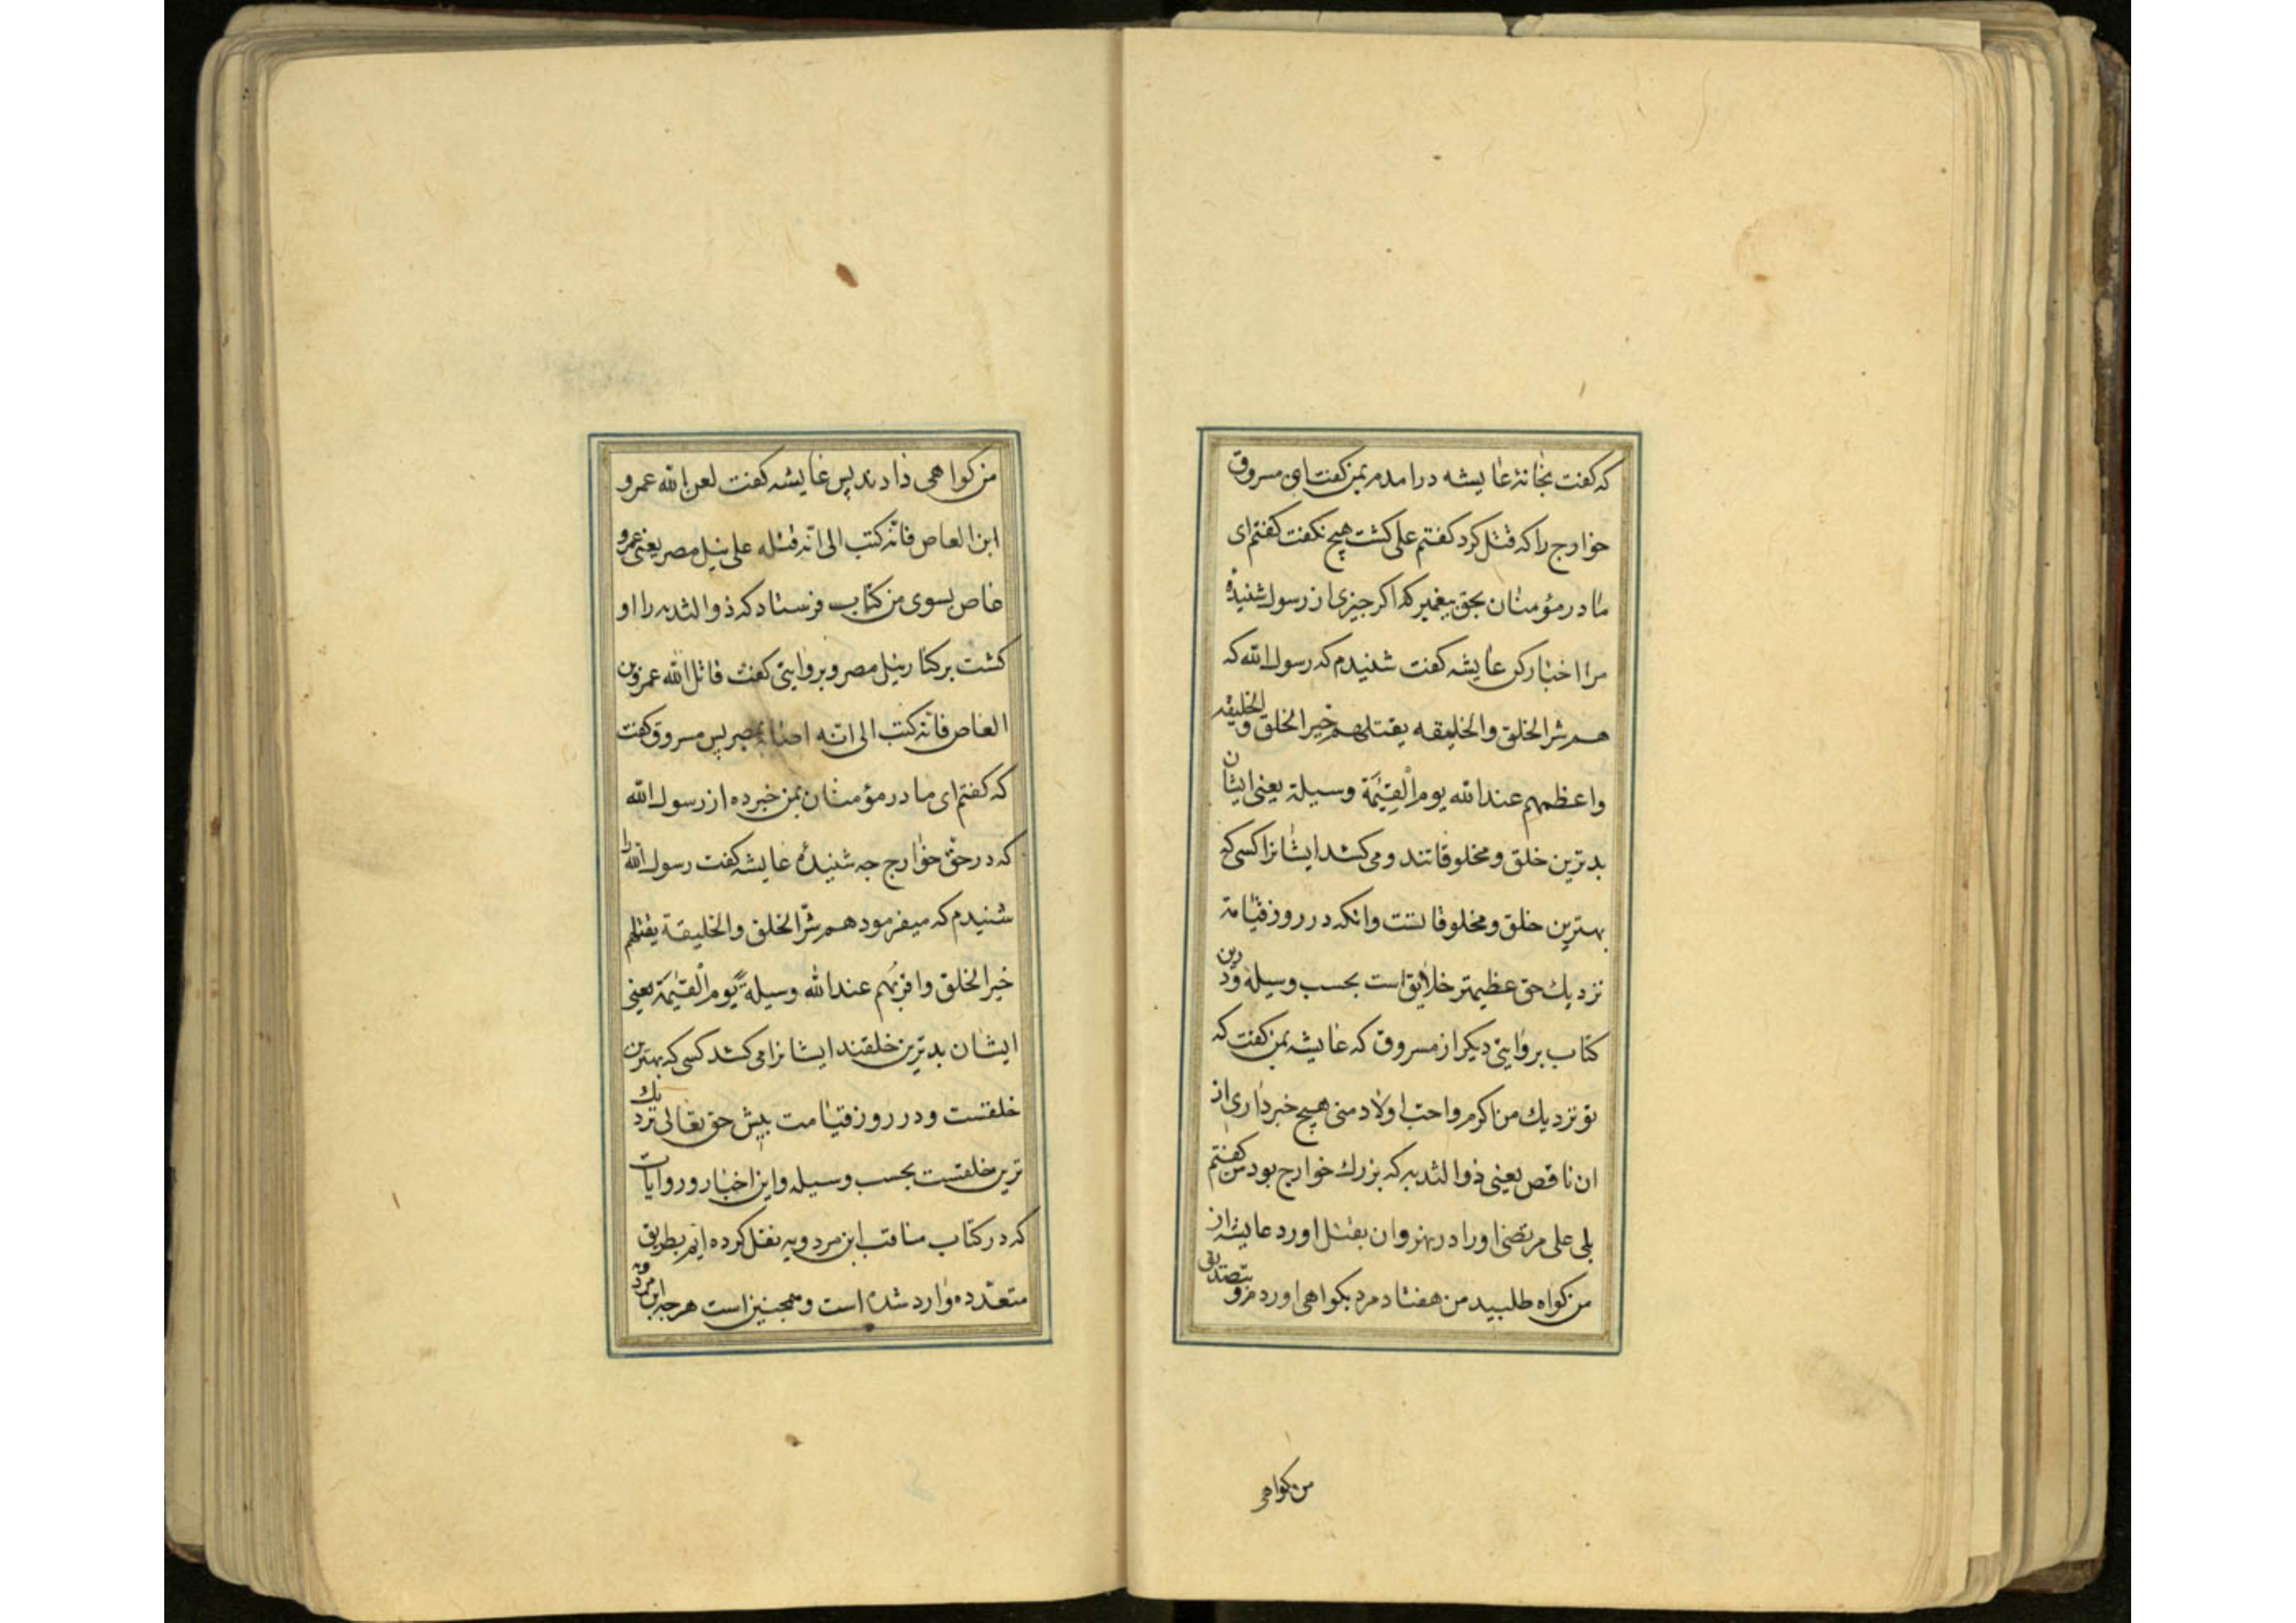 که کفت بخانهٔ عایشه درامدم بمن کفت ای مسروق
خوارج را که قتل کرد کفتم علی کشت هیچ نکفت کفتم ای
مادر مؤمنان بحق پیغمبر که اکر چیزی از رسول شنیدهٔ
مرا اخبار کن عایشه کفت شنیدم که رسول الله که
هم شر الخلق والخلیقه یقتلهم خیر الخلق والخلیقه
واعظمهم عند الله یوم القیٰمَة وسیلة یعنی ایشان
بدترین خلق ومخلوقاتند ومی کشد ایشانرا کسی که
بهترین خلق ومخلوقاتست وانکه در روز قیامة
نزدیك حق عظیمتر خلایق است بحسب وسیله ودرین
کتاب بروایتی دیکر از مسروق که عایشه بمن کفت که
تو نزدیك من اکرم واحب اولاد منی هیچ خبر داری از
ان ناقص یعنی ذوالثدیه که بزرك خوارج بود من کفتم
بلی علی مرتضی اورا در نهروان بقتل اورد عایشه از
من کواه طلبید من هفتاد مرد بکواهی اوردم وبتصدیق
من کواهی
من کواهی دادند پس عایشه کفت لعن الله عمرو
ابن العاص فانّه کتب الی انّه قتله علی نیل مصر یعنی عمرو
عاص بسوی من کتاب فرستاد که ذوالثدیه را او
کشت بر کنار نیل مصر وبروایتی کفت قاتل الله عمرو بن
العاص فانّه کتب الی انّه اصابه بمصر پس مسروق کفت
که کفتم ای مادر مؤمنان بمن خبر ده از رسول الله
که در حق خوارج چه شنیدهٔ عایشه کفت رسول الله را
شنیدم که میفرمود هم شرّ الخلق والخلیقة یقتلهم
خیر الخلق واقربُهم عند الله وسیلةً یوم القیٰمَة یعنی
ایشان بدترین خلقند ایشانرا می کشد کسی که بهترین
خلقست ودر روز قیامت پیش حق تعالی نزدیك
ترین خلقست بحسب وسیله واین اخبار وروایات
که در کتاب مناقب ابن مردویه نقل کرده ایم بطریق
متعدّده وارد شده است وهمچنین است هرچه ابن مردویه